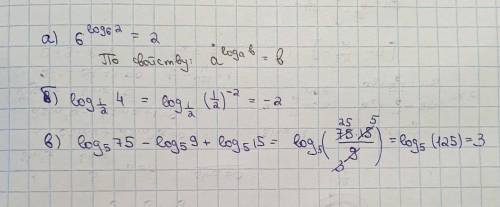 а) 6^{log_6 2} = 2
По свойству: a^{log_a b} = b
б) log_{1/2} 4 = log_{1/2} (1/2)^{-2} = -2
в) log_5 75 - log_5 9 + log_5 15 = log_5 (\frac{\overset{25}{\cancel{75}} \cdot \overset{5}{\cancel{15}}}{\underset{3}{\cancel{9}}}) = log_5 (125) = 3